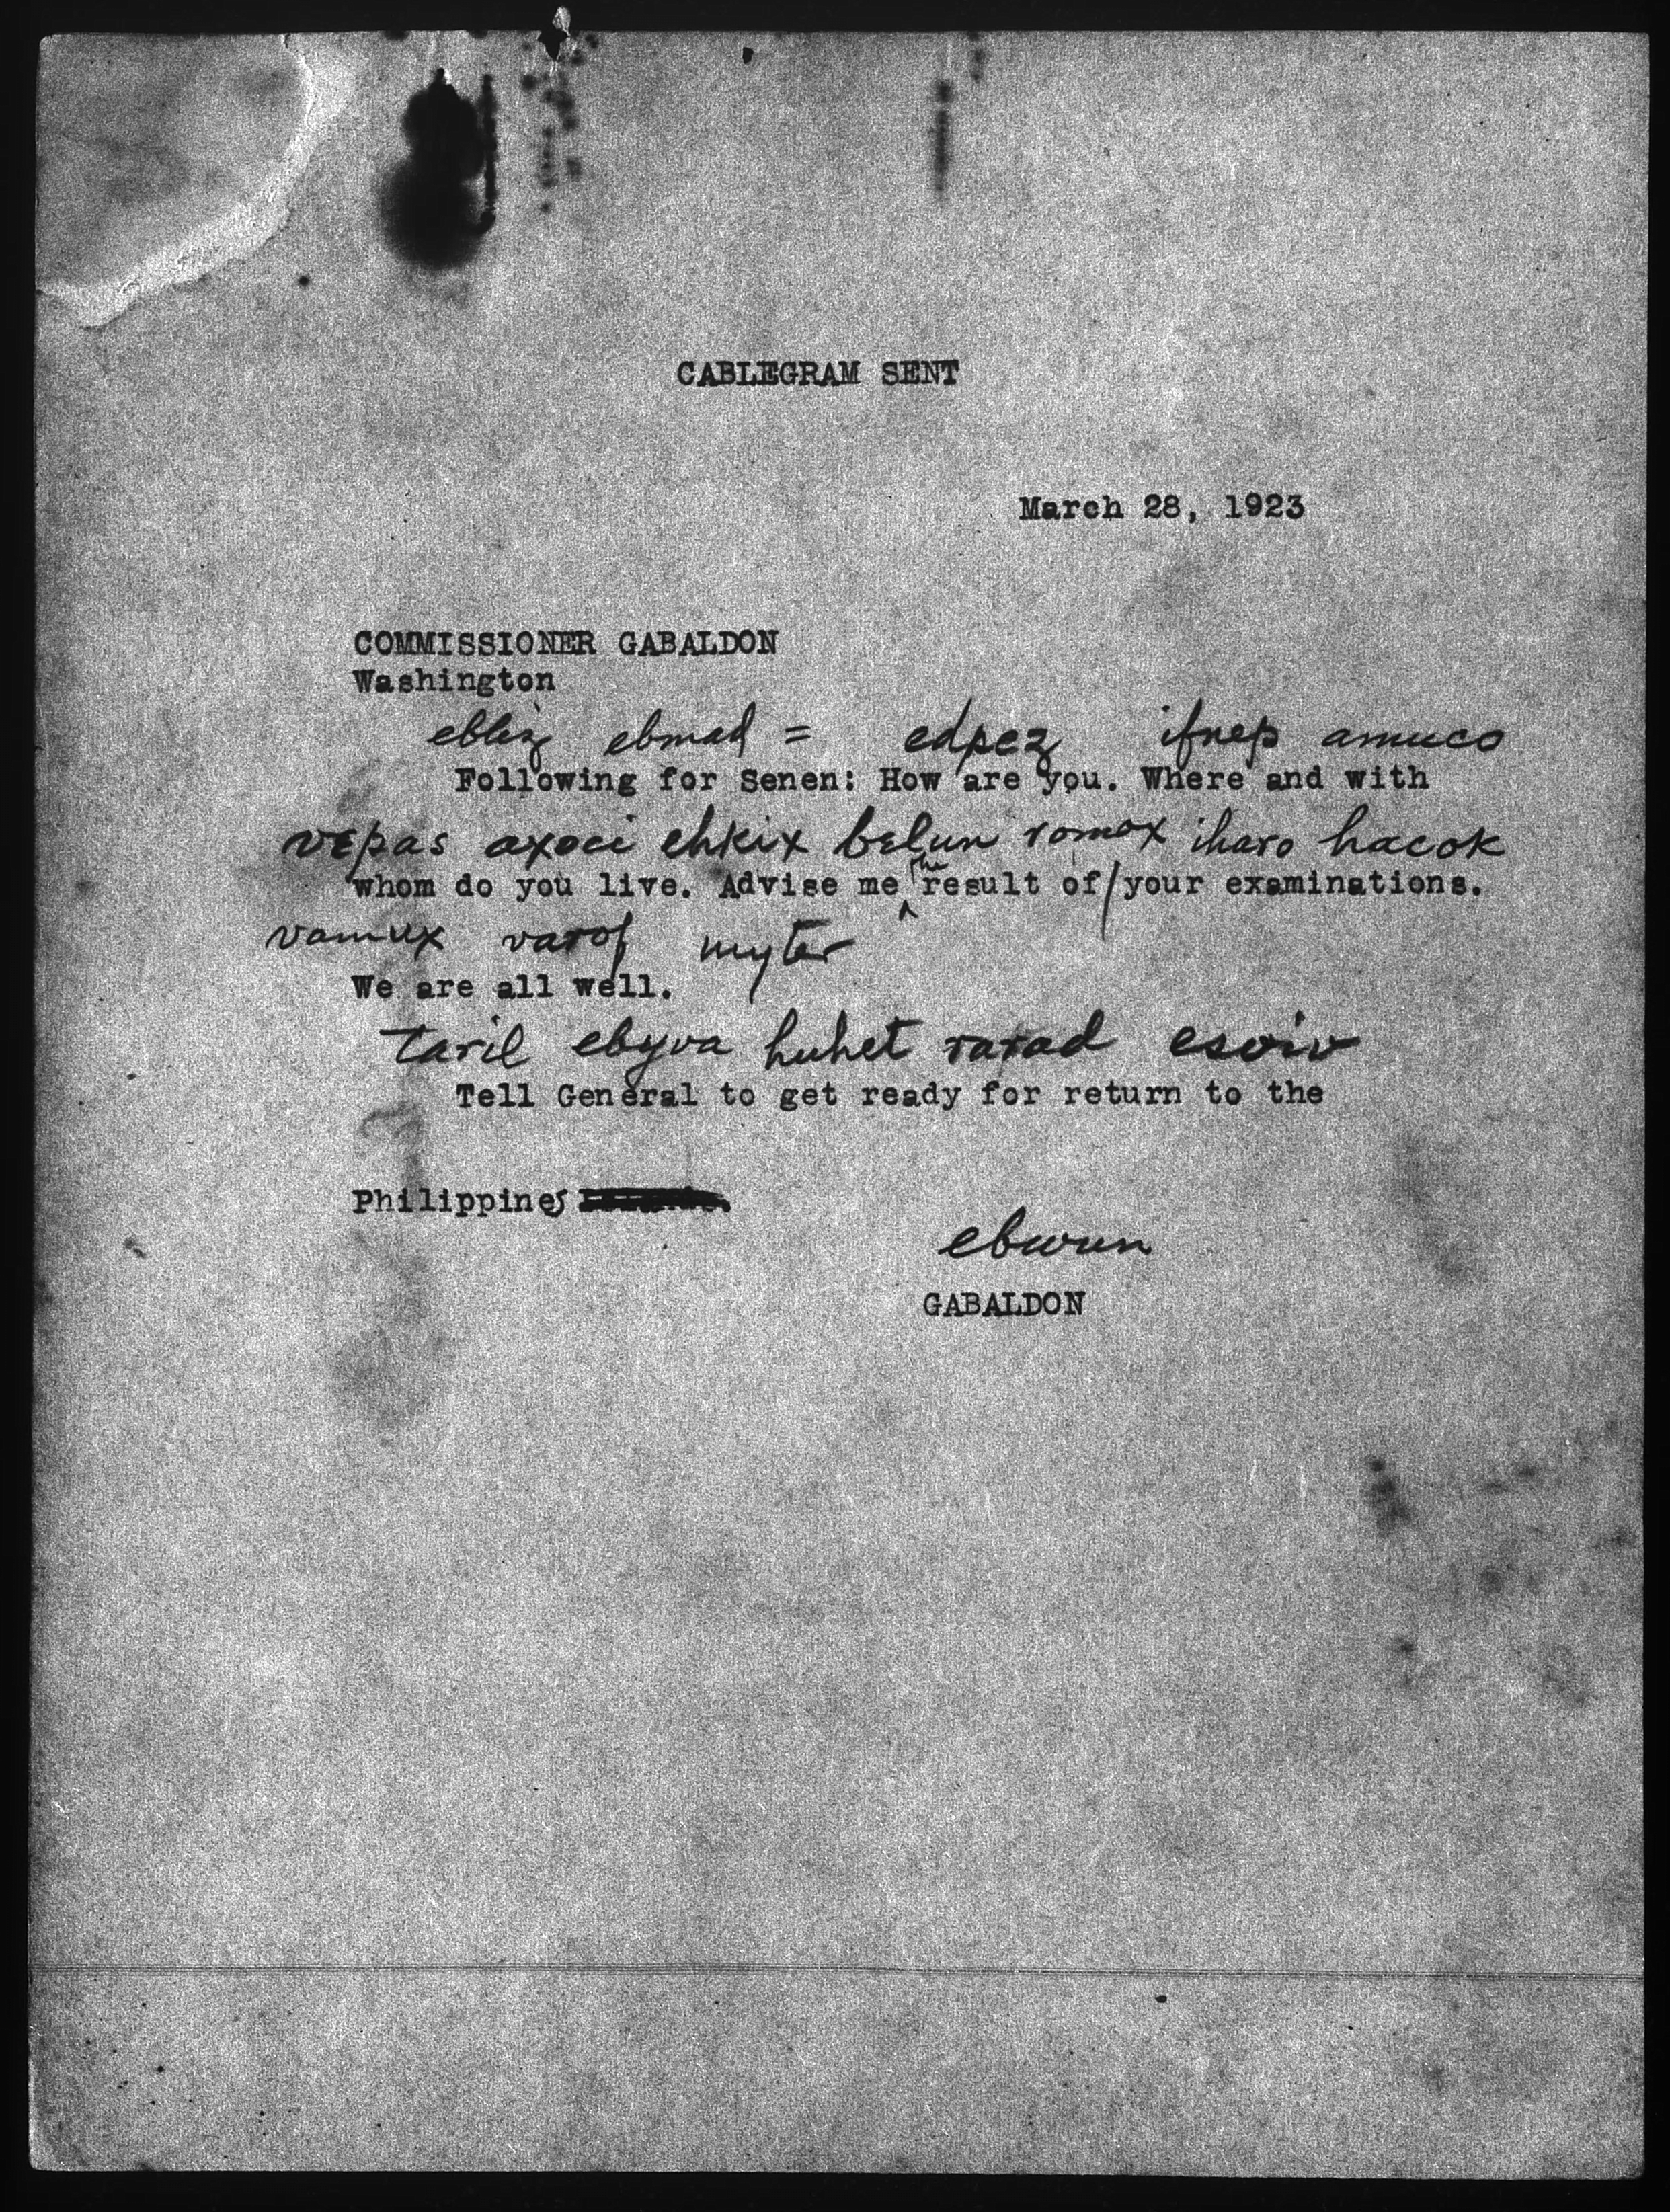 CABLEGRAM SENT
March 28, 1923
COMMISSIONER GABALDON
Washington
ebliz ebmad = edpez ifnep amuco
Following for Senen: How are you. Where and with
vepas axoci ehkix belun romox iharo hacok
whom do you live. Advise me the result of/your examinations.
vamux varof myter
We are all well.
taril ebyva huhet rarad esoiv
Tell General to get ready for return to the
Philippines
ebwun
GABALDON